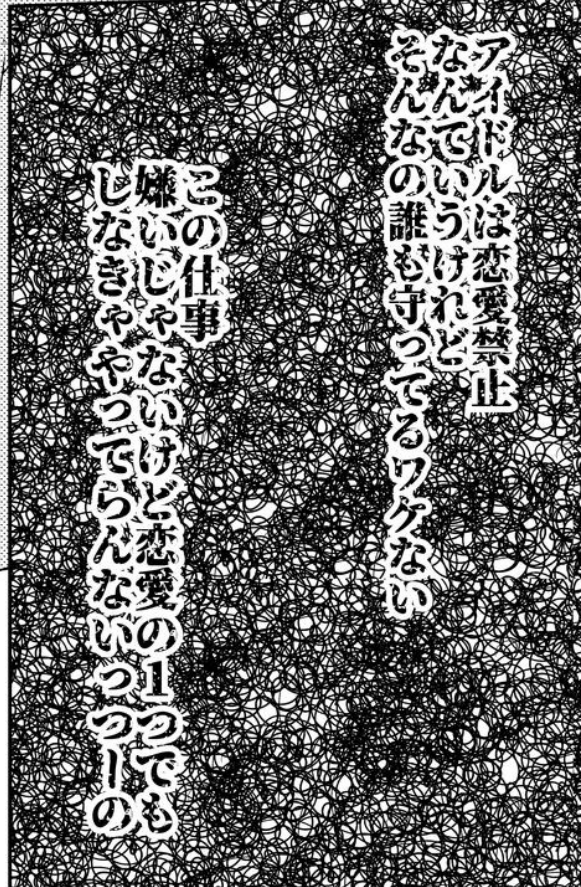 アイドルは恋愛禁止
なんていうけれど
そんなの誰も守ってるワケない
この仕事
嫌いじゃないけど恋愛の1つでも
しなきゃやってらんないっつーの